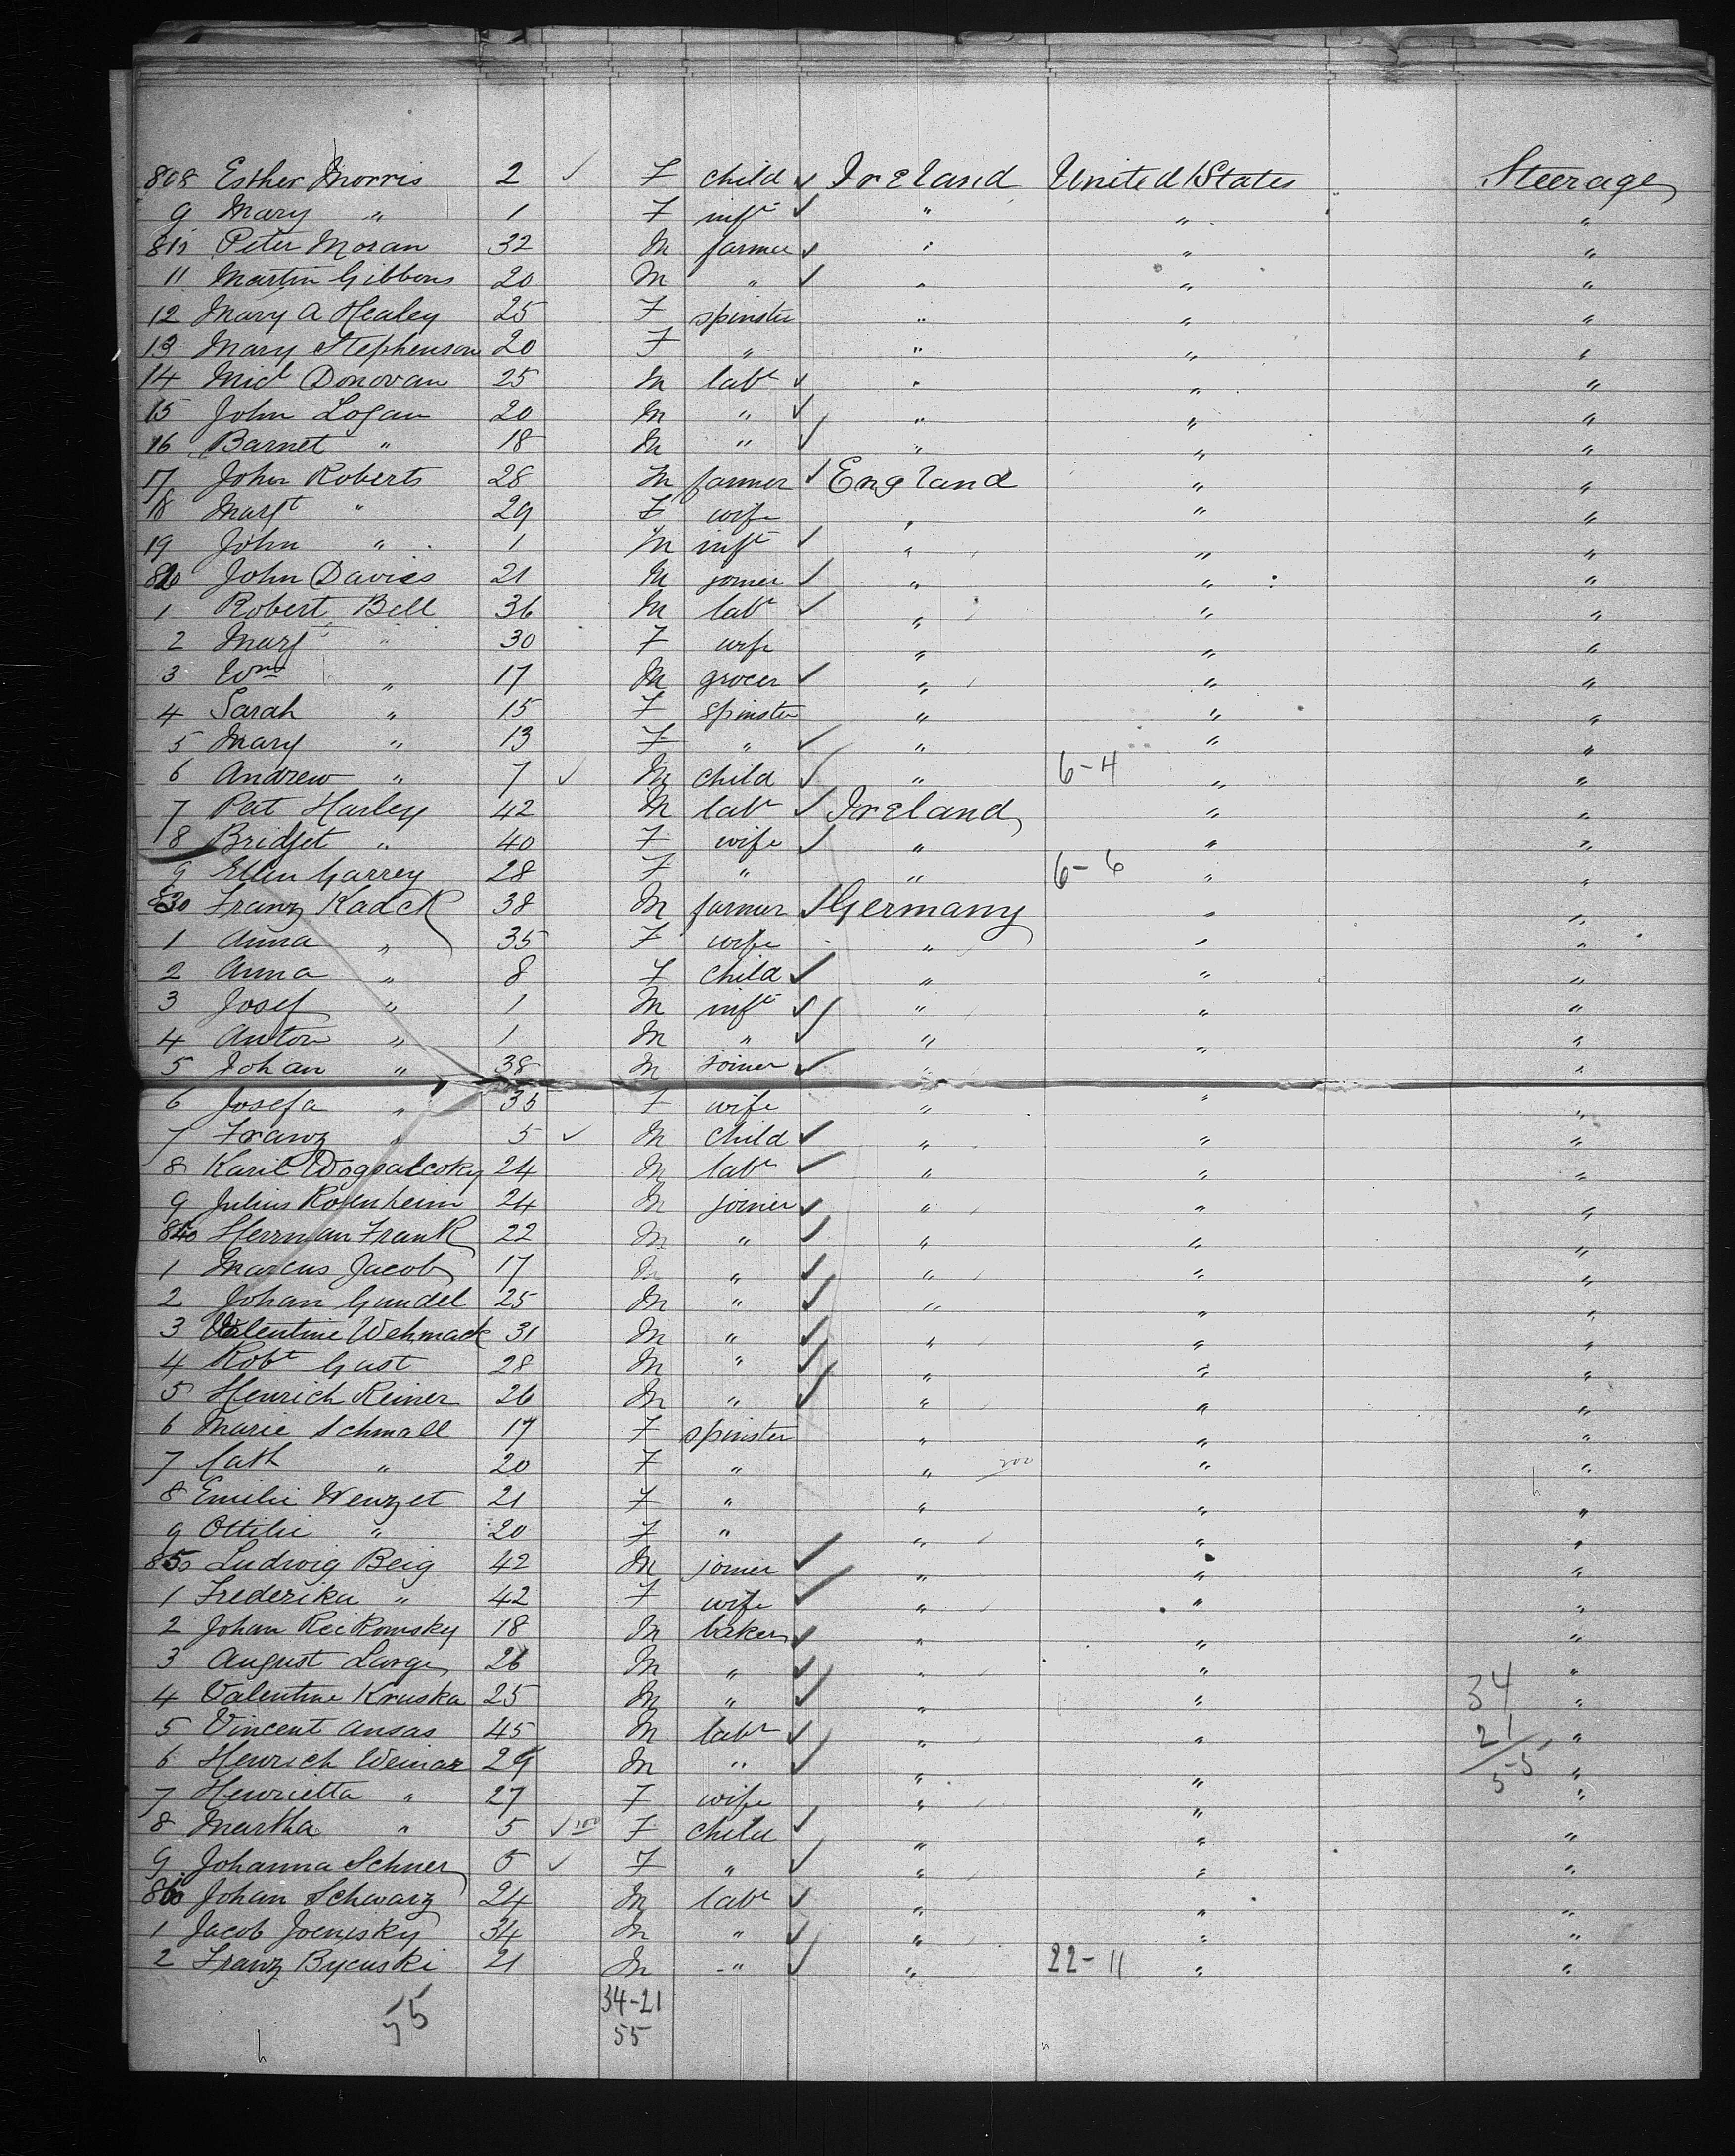 808 Esther Morris 2 ✓ F child ✓ Ireland United States Steerage
9 Mary " 1 F inft ✓ " " "
810 Peter Moran 32 M farmer ✓ " " "
11 Martin Gibbons 20 M " ✓ " " "
12 Mary A Healey 25 F spinster " " "
13 Mary Stephenson 20 F " " " "
14 Micl Donovan 25 M labr ✓ " " "
15 John Logan 20 M " ✓ " " "
16 Barnet " 18 M " ✓ " " "
17 John Roberts 28 M farmer ✓ England " "
18 Margt " 29 F wife " " "
19 John " 1 M inft ✓ " " "
820 John Davies 21 M joiner ✓ " " "
1 Robert Bell 36 M labr ✓ " " "
2 Margt " 30 F wife " " "
3 Wm " 17 M grocer ✓ " " "
4 Sarah " 15 F spinster " " "
5 Mary " 13 F " ✓ " " "
6 Andrew " 7 ✓ M child ✓ " 6-4 " "
7 Pat Harley 42 M labr ✓ Ireland " "
8 Bridget " 40 F wife ✓ " " "
9 Ellen Garrey 28 F " " 6-6 " "
830 Franz Kadck 38 M farmer ✓ Germany " "
1 Anna " 35 F wife " " "
2 Anna " 8 F child ✓ " " "
3 Josef " 1 M inft ✓ " " "
4 Anton " 1 M " ✓ " " "
5 Johan " 38 M joiner ✓ " " "
6 Josefa " 35 F wife " " "
7 Franz " 5 ✓ M child ✓ " " "
8 Karil 24 M labr ✓ " " "
9 Julius Rosenheim 24 M joiner ✓ " " "
840 Herrman Frank 22 M " ✓ " " "
1 Marcus Jacob 17 M " ✓ " " "
2 Johan Gundel 25 M " ✓ " " "
3 Valentine Wehmack 31 M " ✓ " " "
4 Robt Gust 28 M " ✓ " " "
5 Henrich Reiner 26 M " ✓ " " "
6 Marie Schmall 17 F spinster " " "
7 Cath " 20 F " " 200 " "
8 Emilie Wenzet 21 F " " " "
9 Ottilie " 20 F " " " "
850 Ludwig Beig 42 M joiner ✓ " " "
1 Frederika " 42 F wife ✓ " " "
2 Johan Reikomsky 18 M baker ✓ " " "
3 August Large 26 M " ✓ " " "
4 Valentine Kruska 25 M " ✓ " " 34 "
5 Vincent Ansas 45 M labr ✓ " " 21 "
6 Henrich Weinar 29 M " ✓ " " 55 "
7 Henrietta " 27 F wife " " "
8 Martha " 5 ✓ 100 F child ✓ " " "
9 Johanna Schner 5 ✓ F " ✓ " " "
860 Johan Schwarz 24 M labr ✓ " " "
1 Jacob 34 M " ✓ " " "
2 Franz Bycuski 21 M " ✓ " 22-11 " "
55 34-21
55